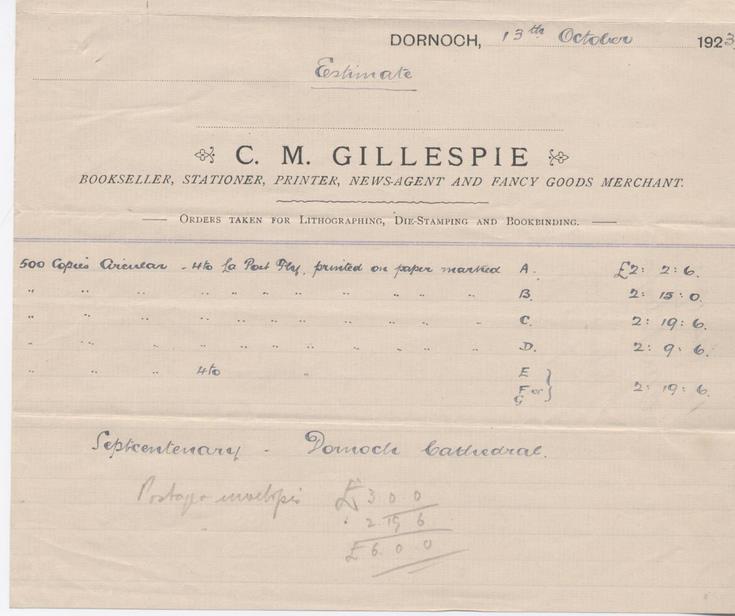 DORNOCH, 13th October 1923
Estimate
C. M. GILLESPIE
BOOKSELLER, STATIONER, PRINTER, NEWS-AGENT AND FANCY GOODS MERCHANT.
ORDERS TAKEN FOR LITHOGRAPHING, DIE-STAMPING AND BOOKBINDING.
500 Copies Circular - 4to La Post Fly, printed on paper marked A. £2: 2: 6.
" " " " " " " " " " " B. 2: 15: 0.
" " " " " " " " " " " C. 2: 19: 6.
" " " " " " " " " " " D. 2: 9: 6.
" " " 4to " E
F or G } 2: 19: 6.
Septcentenary - Dornoch Cathedral.
Postage envelopes £3 0 0
2 19 6
£6 0 0